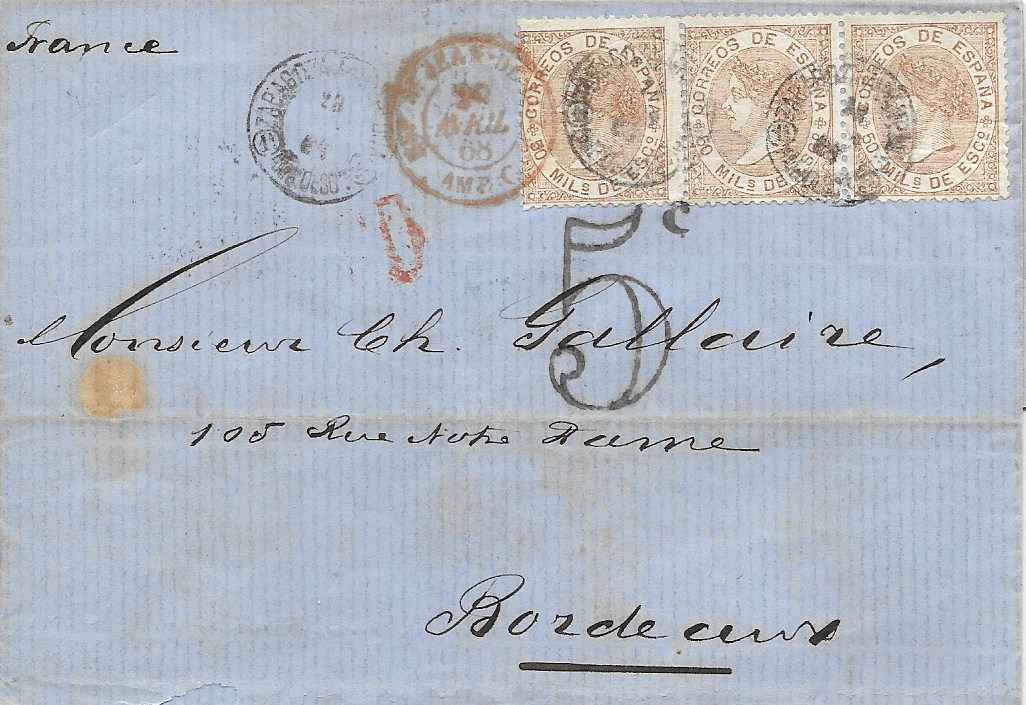 France
ZARAGOZA
28
68
AVRIL
68
AMB. C
CORREOS DE ESPAÑA
50 MILS DE ESCO
CORREOS DE ESPAÑA
50 MILS DE ESCO
CORREOS DE ESPAÑA
50 MILS DE ESCO
5c
Monsieur Ch. Gallaire,
105 Rue Notre Dame
Bordeaux